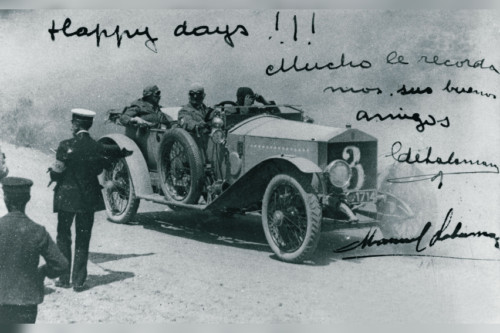 Happy days !!!
Mucho le recorda
mos sus buenos
amigos
Manuel
3